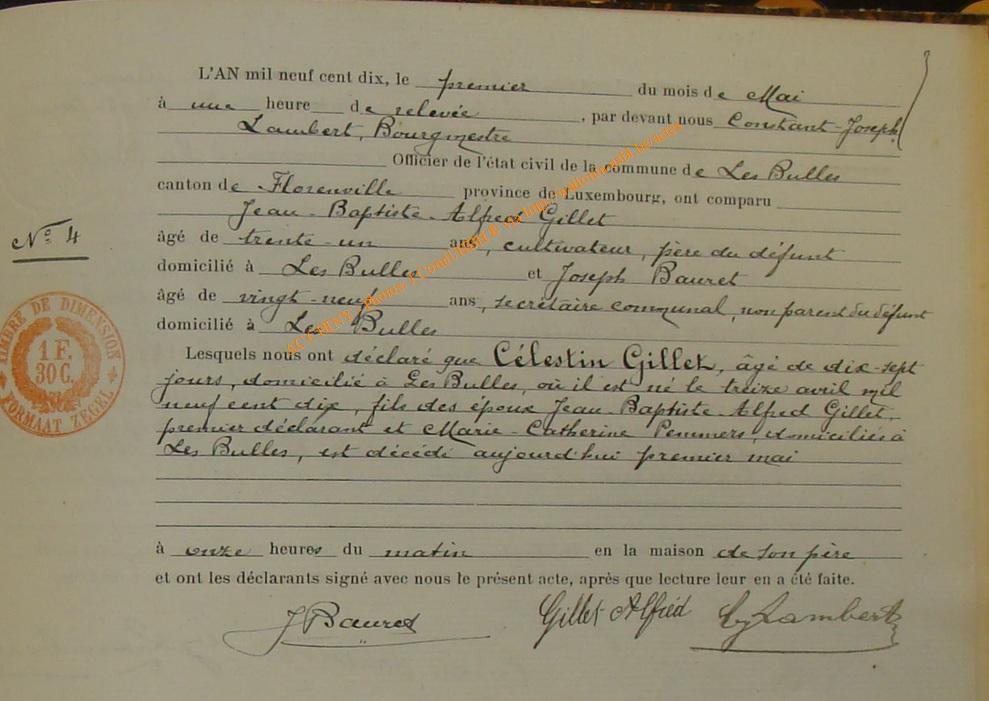 L'AN mil neuf cent dix, le premier du mois de Mai
à une heure de relevée, par devant nous Constant-Joseph
Lambert, Bourgmestre
Officier de l'état civil de la commune de Les Bulles
canton de Florenville province de Luxembourg, ont comparu
Jean-Baptiste-Alfred Gillet
âgé de trente-un ans, cultivateur, père du défunt
domicilié à Les Bulles et Joseph Bauret
âgé de vingt-neuf ans, secrétaire communal, non parent du défunt
domicilié à Les Bulles
Lesquels nous ont déclaré que Célestin Gillet, âgé de dix-sept
jours, domicilié à Les Bulles, où il est né le treize avril mil
neuf cent dix, fils des époux Jean-Baptiste-Alfred Gillet,
premier déclarant et Marie-Catherine Pemmers, domiciliés à
Les Bulles, est décédé aujourd'hui premier mai
à onze heures du matin en la maison de son père
et ont les déclarants signé avec nous le présent acte, après que lecture leur en a été faite.
J Bauret
Gillet Alfred
Lambert
N° 4
TIMBRE DE DIMENSION
1 F.
30 C.
FORMAAT ZEGEL